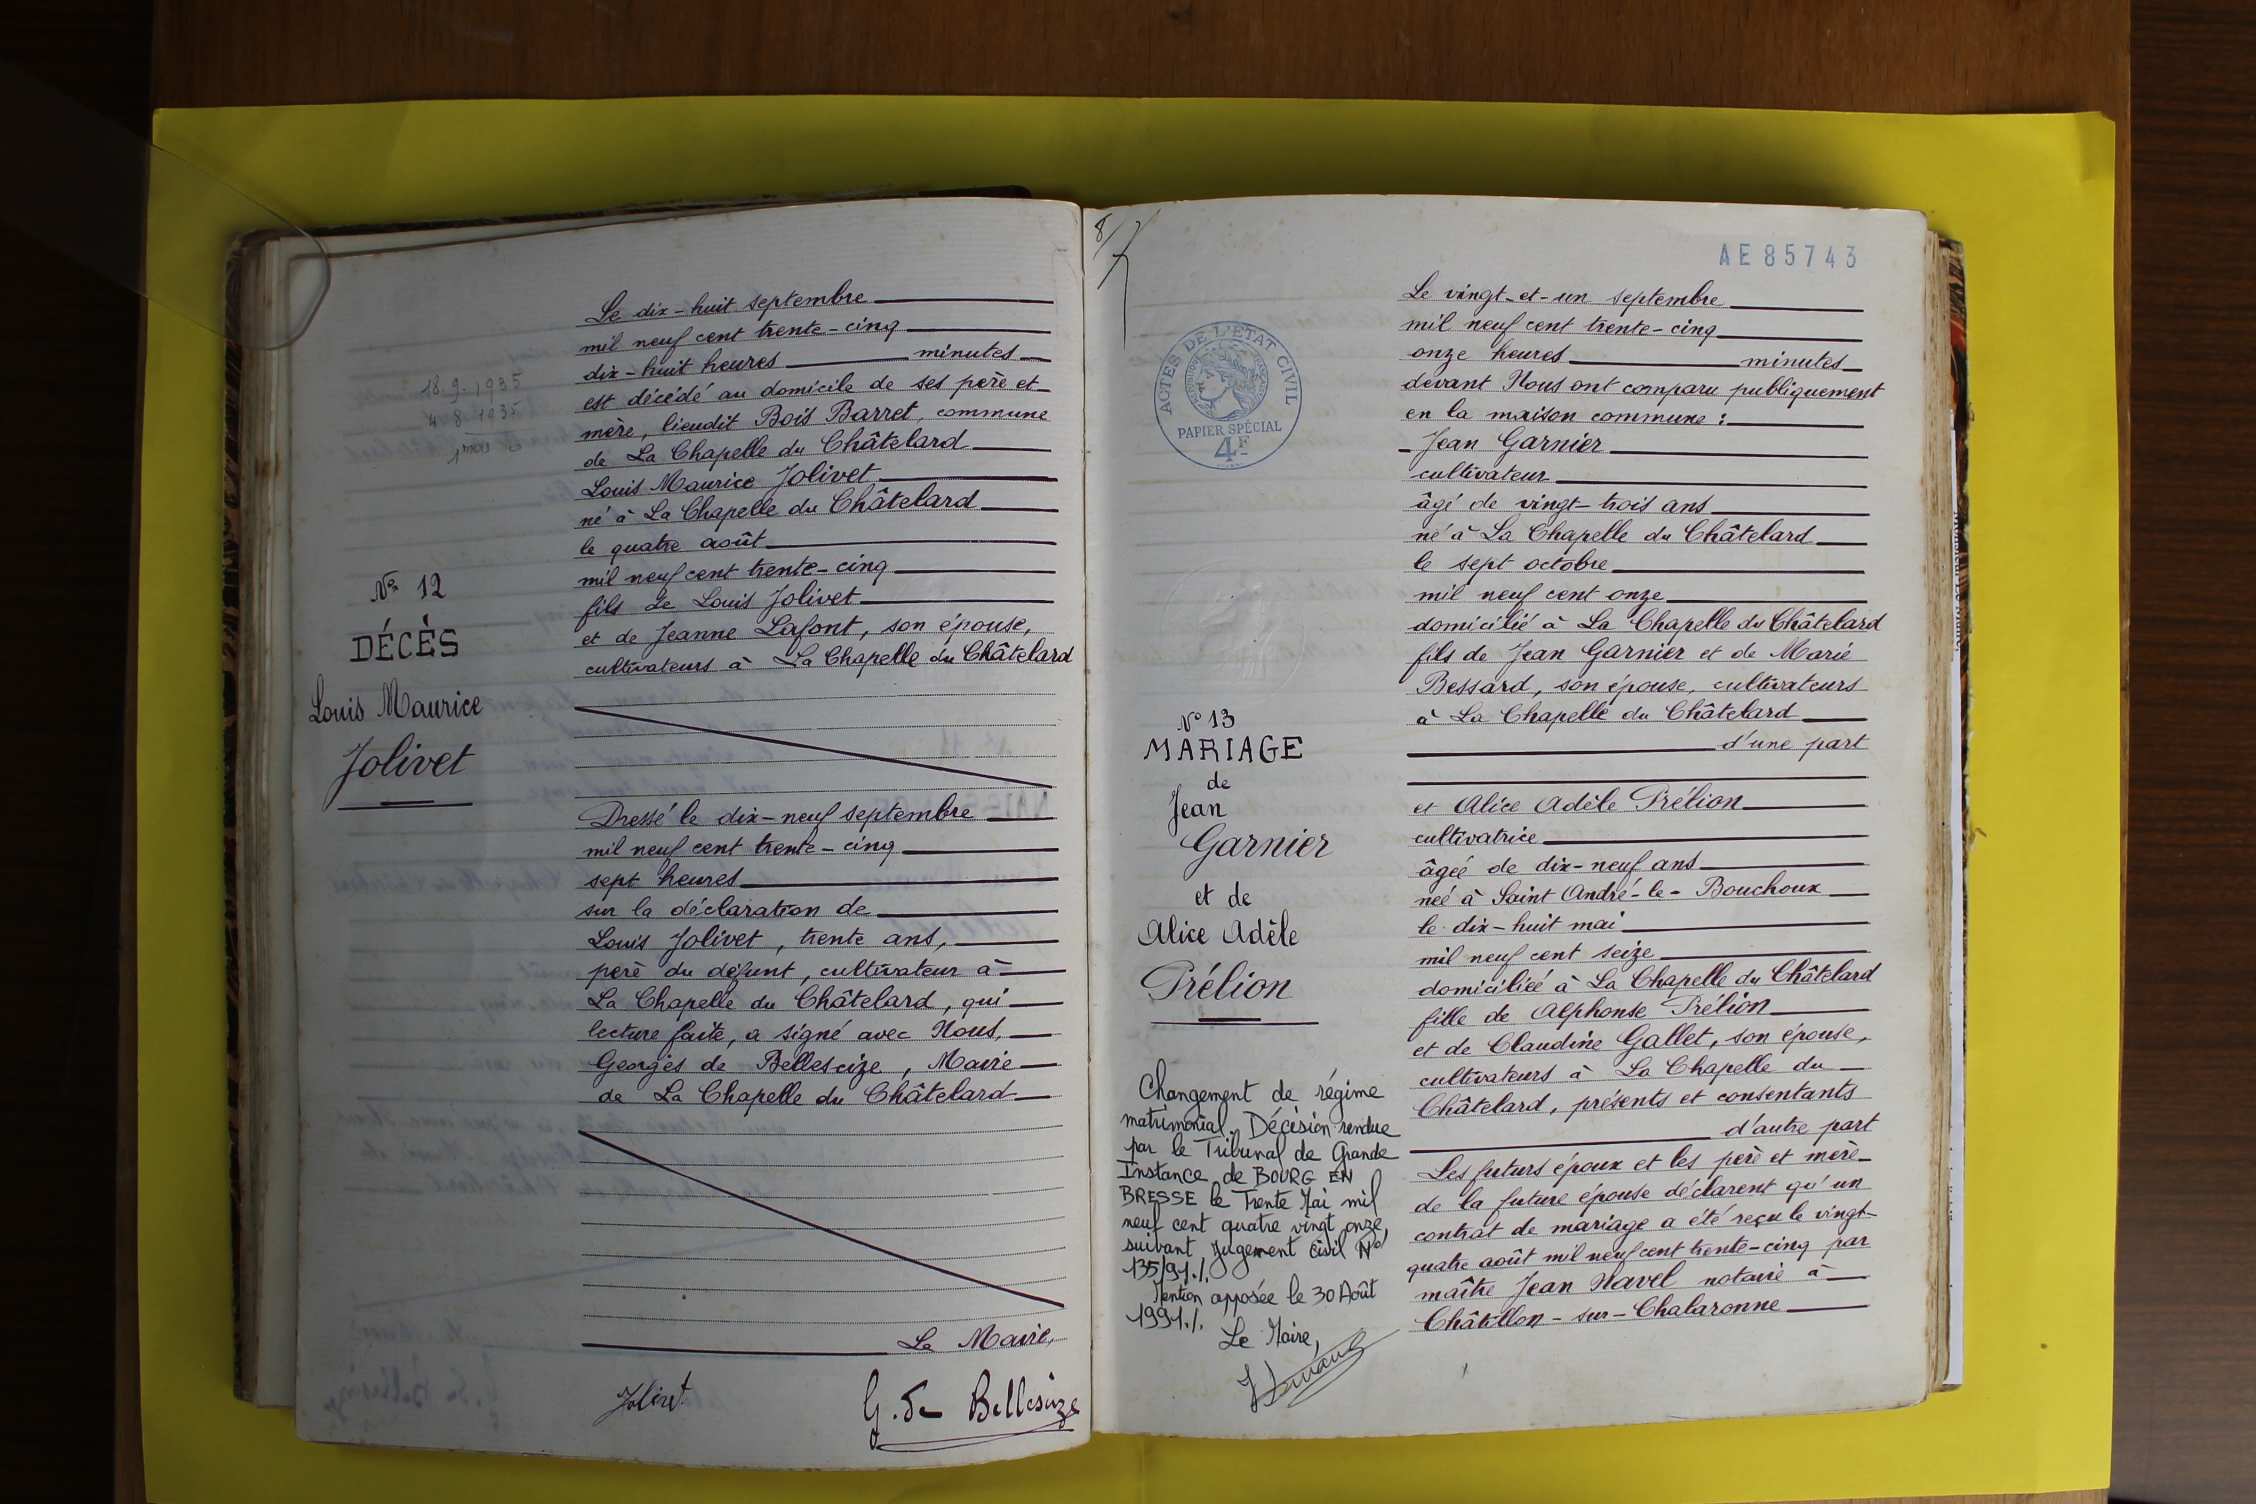 18.9.1935
4 8 1935
Nº 12
DÉCÈS
Louis Maurice
Jolivet
Le dix-huit septembre
mil neuf cent trente-cinq
dix-huit heures minutes
est décédé au domicile de ses père et
mère, lieudit Bois Barret, commune
de La Chapelle du Châtelard
Louis Maurice Jolivet
né à La Chapelle du Châtelard
le quatre août
mil neuf cent trente-cinq
fils de Louis Jolivet
et de Jeanne Lafont, son épouse,
cultivateurs à La Chapelle du Châtelard
Dressé le dix-neuf septembre
mil neuf cent trente-cinq
sept heures
sur la déclaration de
Louis Jolivet, trente ans,
père du défunt, cultivateur à
La Chapelle du Châtelard, qui
lecture faite, a signé avec Nous,
Georges de Bellescize, Maire
de La Chapelle du Châtelard
Le Maire,
Jolivet
G. de Bellescize
8/
AE85743
ACTES DE L'ÉTAT CIVIL
PAPIER SPÉCIAL
4F
Nº 13
MARIAGE
de
Jean
Garnier
et de
Alice Adèle
Prélion
Changement de régime
matrimonial. Décision rendue
par le Tribunal de Grande
Instance de BOURG EN
BRESSE le Trente Mai mil
neuf cent quatre vingt onze,
suivant Jugement civil Nº
135/91./.
Mention apposée le 30 Août
1991./.
Le Maire,
Le vingt-et-un septembre
mil neuf cent trente-cinq
onze heures minutes
devant Nous ont comparu publiquement
en la maison commune :
Jean Garnier
cultivateur
âgé de vingt-trois ans
né à La Chapelle du Châtelard
le sept octobre
mil neuf cent onze
domicilié à La Chapelle du Châtelard
fils de Jean Garnier et de Marie
Bessard, son épouse, cultivateurs
à La Chapelle du Châtelard
d'une part
et Alice Adèle Prélion
cultivatrice
âgée de dix-neuf ans
née à Saint André-le-Bouchoux
le dix-huit mai
mil neuf cent seize
domiciliée à La Chapelle du Châtelard
fille de Alphonse Prélion
et de Claudine Gallet, son épouse,
cultivateurs à La Chapelle du
Châtelard, présents et consentants
d'autre part
Les futurs époux et les père et mère
de la future épouse déclarent qu'un
contrat de mariage a été reçu le vingt-
quatre août mil neuf cent trente-cinq par
maître Jean Navel notaire à
Châtillon-sur-Chalaronne